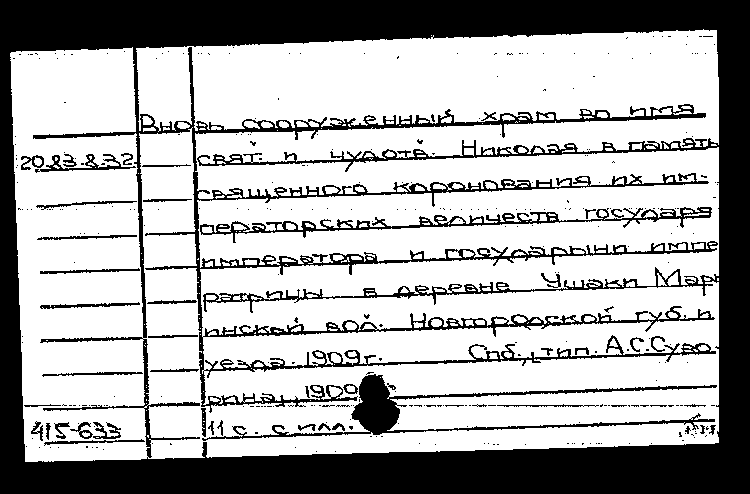 Вновь сооруженный храм во имя
20.83.8.32 свят. и чудотв. Николая в память
священного коронования их им-
ператорских величеств государя
императора и государыни импе
ратрицы в деревне Ушаки Мари
инской вол. Новгородской губ. и
уезда. 1909г. Спб., тип. А.С.Суво-
рина, 1909
415-633 11 с. с илл.